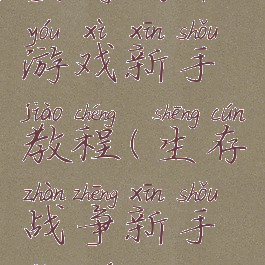 yóu xì xīn shǒu
游戏新手
jiào chéng shēng cún
教程(生存
zhàn zhēng xīn shǒu
战争新手